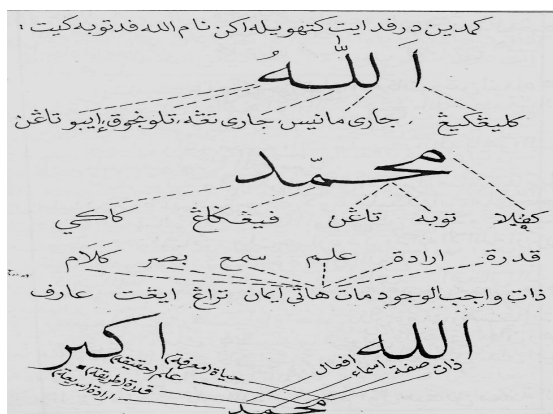 كمدين درفد ايت كتهويله اكن نام الله فد توبه كيت :
اَللّٰهُ
كليڠكيڠ ، جاري مانيس، جاري تڠه، تلونجوق، إيبو تاڠن
محمّد
كڤلا توبه تاڠن ڤيڠݢاڠ كاكي
قدرة ارادة علم سمع بصر كَلَام
ذات واجب الوجود مات هاتي ايمان تراڠ ايڠت عارف
الله اكبر
ذات صفة اسماء افعال حياة (معرفة) علم (حقيقة) قدرة (طريقة) ارادة (شريعة)
محمد